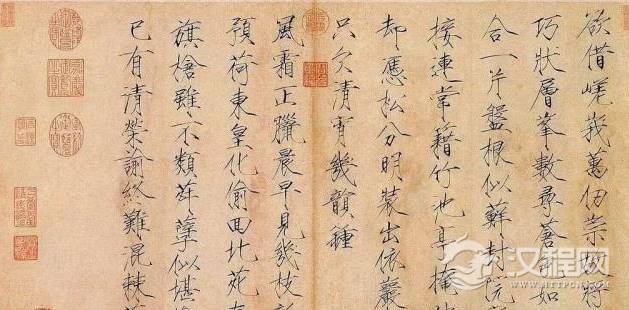 欲借嵯峨萬仞崇故將
巧狀層峯數尋蒼色如
合一片盤根似蘚封院
接連常藉竹池亭掩
却憑松分明裝出依巖
只欠清宵幾韻鐘
風霜正臘晨早見幾枝
預荷東皇化偷回北苑
旗槍雖不類荈孽似堪
已有清榮諭終難混棘
汉程网